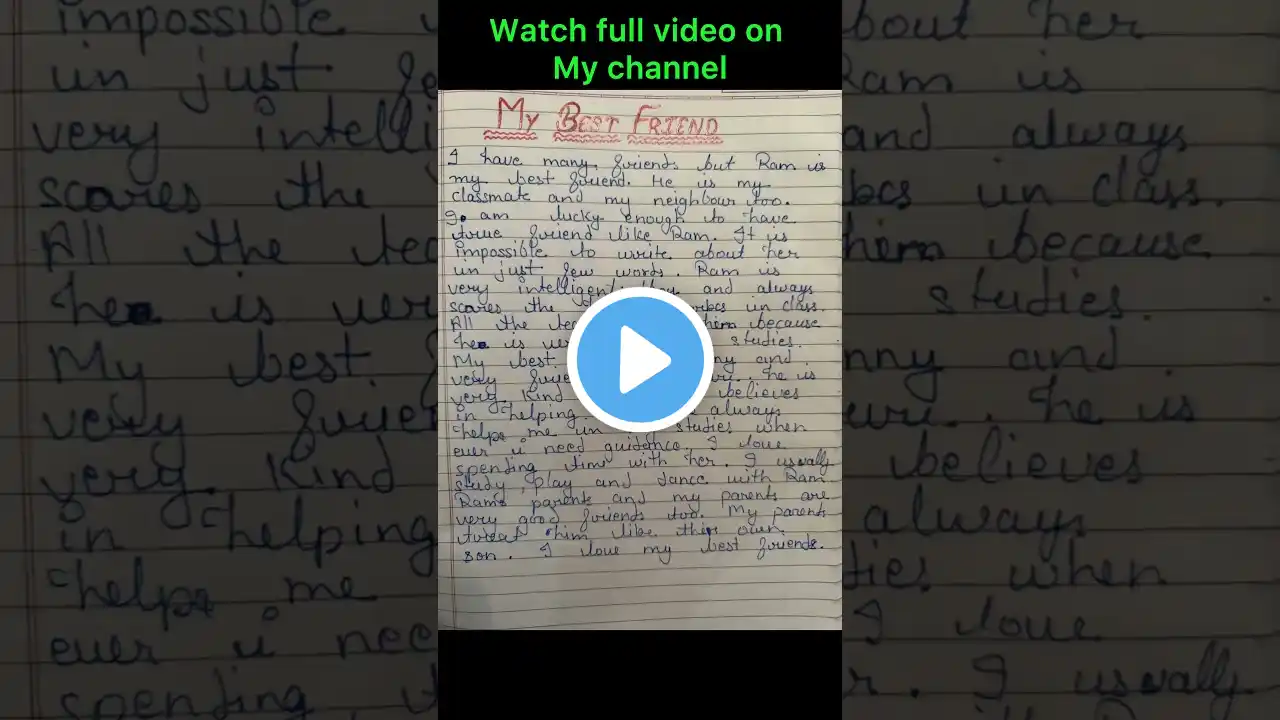 Watch full video on
My channel
My BEST FRIEND
I have many friends but Ram is
my best friend. He is my
classmate and my neighbour too.
I am lucky enough to have
true friend like Ram. It is
impossible to write about her
in just few words. Ram is
very intelligent and always
scores the in class.
All the because
he is studies.
My best and
very he is
very kind believes
in helping always
helps me in studies when
ever i need guidence. I love
spending time with her. I usually
study, play and dance with Ram.
Rams parents and my parents are
very good friends too. My parents
treat him like their own
son. I love my best friends.